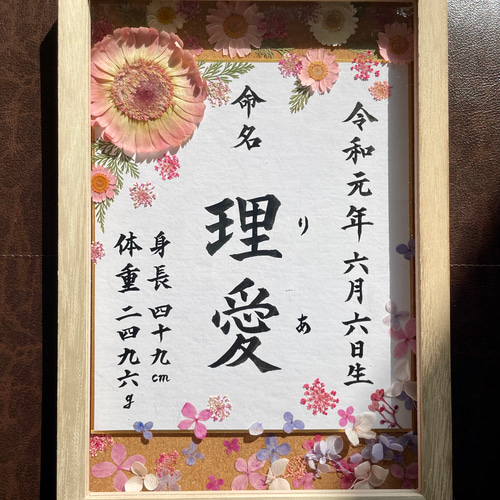 令和元年六月六日生
命名
理愛
りあ
身長 四十九cm
体重 二四九六g